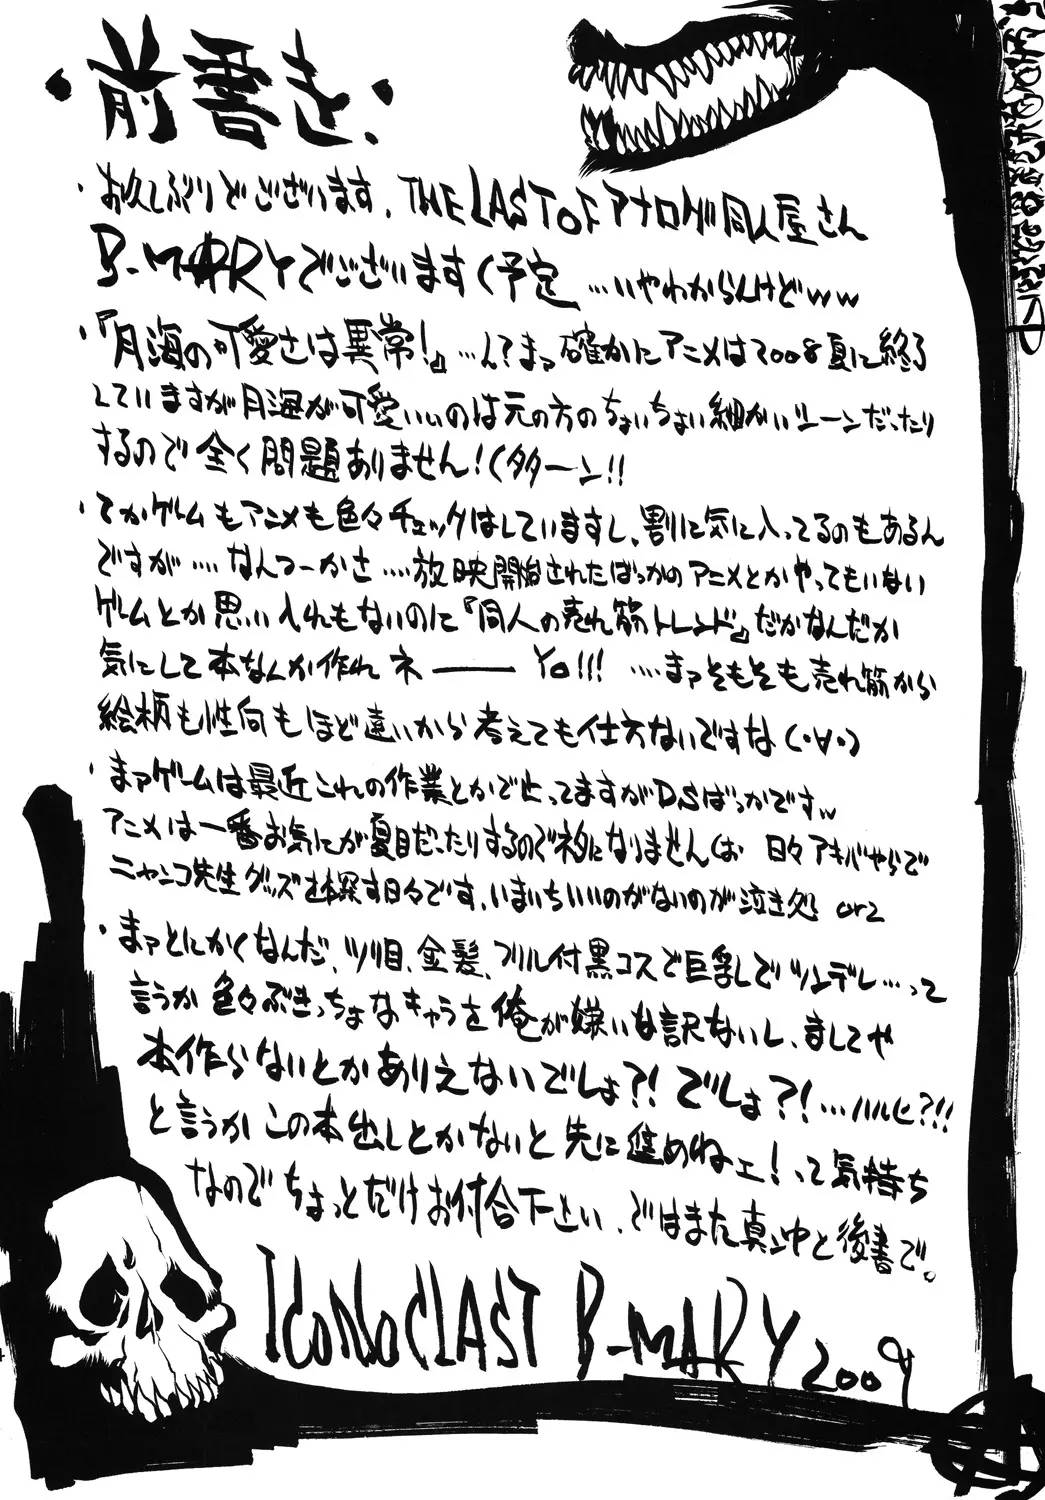 ・前書き・
・お久しぶりでございます、THE LAST OF アナログ同人屋さん
B-MARYでございます(予定 …いやわからんけどww
・『月海の可愛さは異常!』…ん?まァ確かにアニメは2008夏に終了
していますが月海が可愛いいのは元の方のちょいちょい細かいシーンだったり
するので全く問題ありません!(タターン!!
・てかゲームもアニメも色々チェックはしていますし、割に気に入ってるのもあるん
ですが‥‥なんつーかさ‥‥放映開始されたばっかのアニメとかやってもいない
ゲームとか思い入れもないのに『同人の売れ筋トレンド』だかなんだか
気にして本なんか作れネ――Yo!!! ‥‥まァそもそも売れ筋から
絵柄も性向もほど遠いから考えても仕方ないですな(・∀・)
・まァゲームは最近これの作業とかで止ってますがDSばっかですw
アニメは一番お気にが夏目だったりするのでネタになりませんしね 日々アキバやらで
ニャンコ先生グッズを探す日々です、いまいちいいのがないのが泣き処 orz
・まァとにかくなんだ、ツリ目、金髪、フリル付黒コスで巨乳でツンデレ…って
言うか色々ぶきっちょなキャラを俺が嫌いな訳ないし、ましてや
本作らないとかありえないでしょ?!でしょ?!…ハルヒ?!!
と言うかこの本出しとかないと先に進めねェ!って気持ち
なのでちょっとだけお付合下さい、ではまた真ン中と後書で。
ICONOCLAST B-MARY 2009